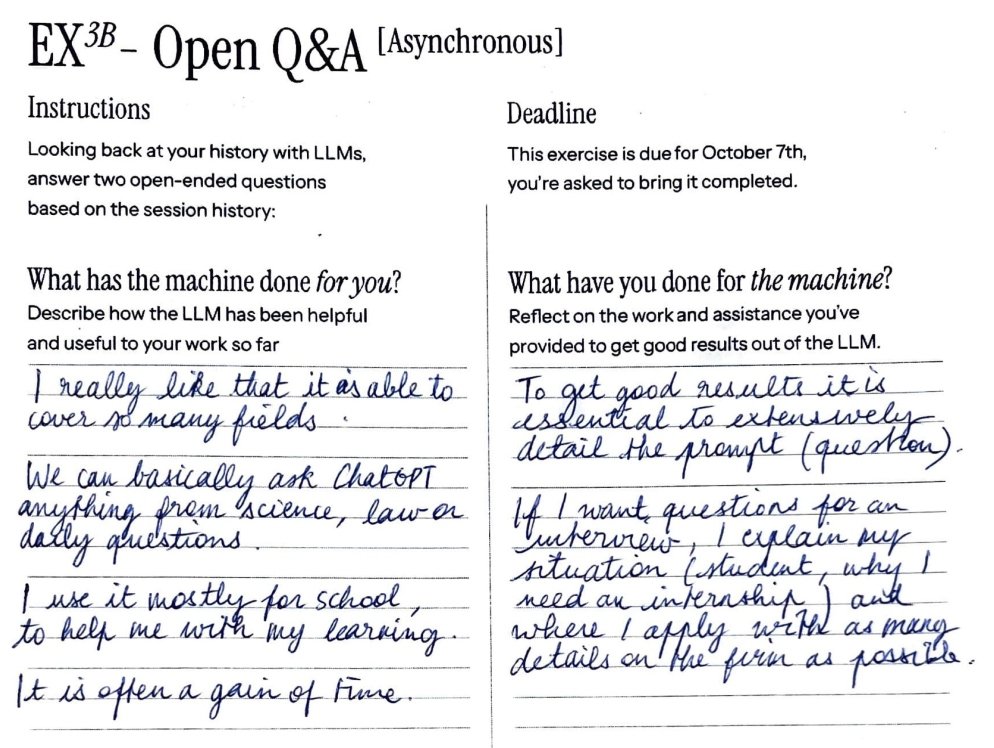 EX3B – Open Q&A [Asynchronous]
Instructions
Looking back at your history with LLMs,
answer two open-ended questions
based on the session history:
Deadline
This exercise is due for October 7th,
you're asked to bring it completed.
What has the machine done for you?
Describe how the LLM has been helpful
and useful to your work so far
I really like that it is able to
cover so many fields.
We can basically ask ChatGPT
anything from science, law or
daily questions.
I use it mostly for school,
to help me with my learning.
It is often a gain of time.
What have you done for the machine?
Reflect on the work and assistance you've
provided to get good results out of the LLM.
To get good results it is
essential to extensively
detail the prompt (question).
If I want questions for an
interview, I explain my
situation (student, why I
need an internship) and
where I apply with as many
details on the firm as possible.